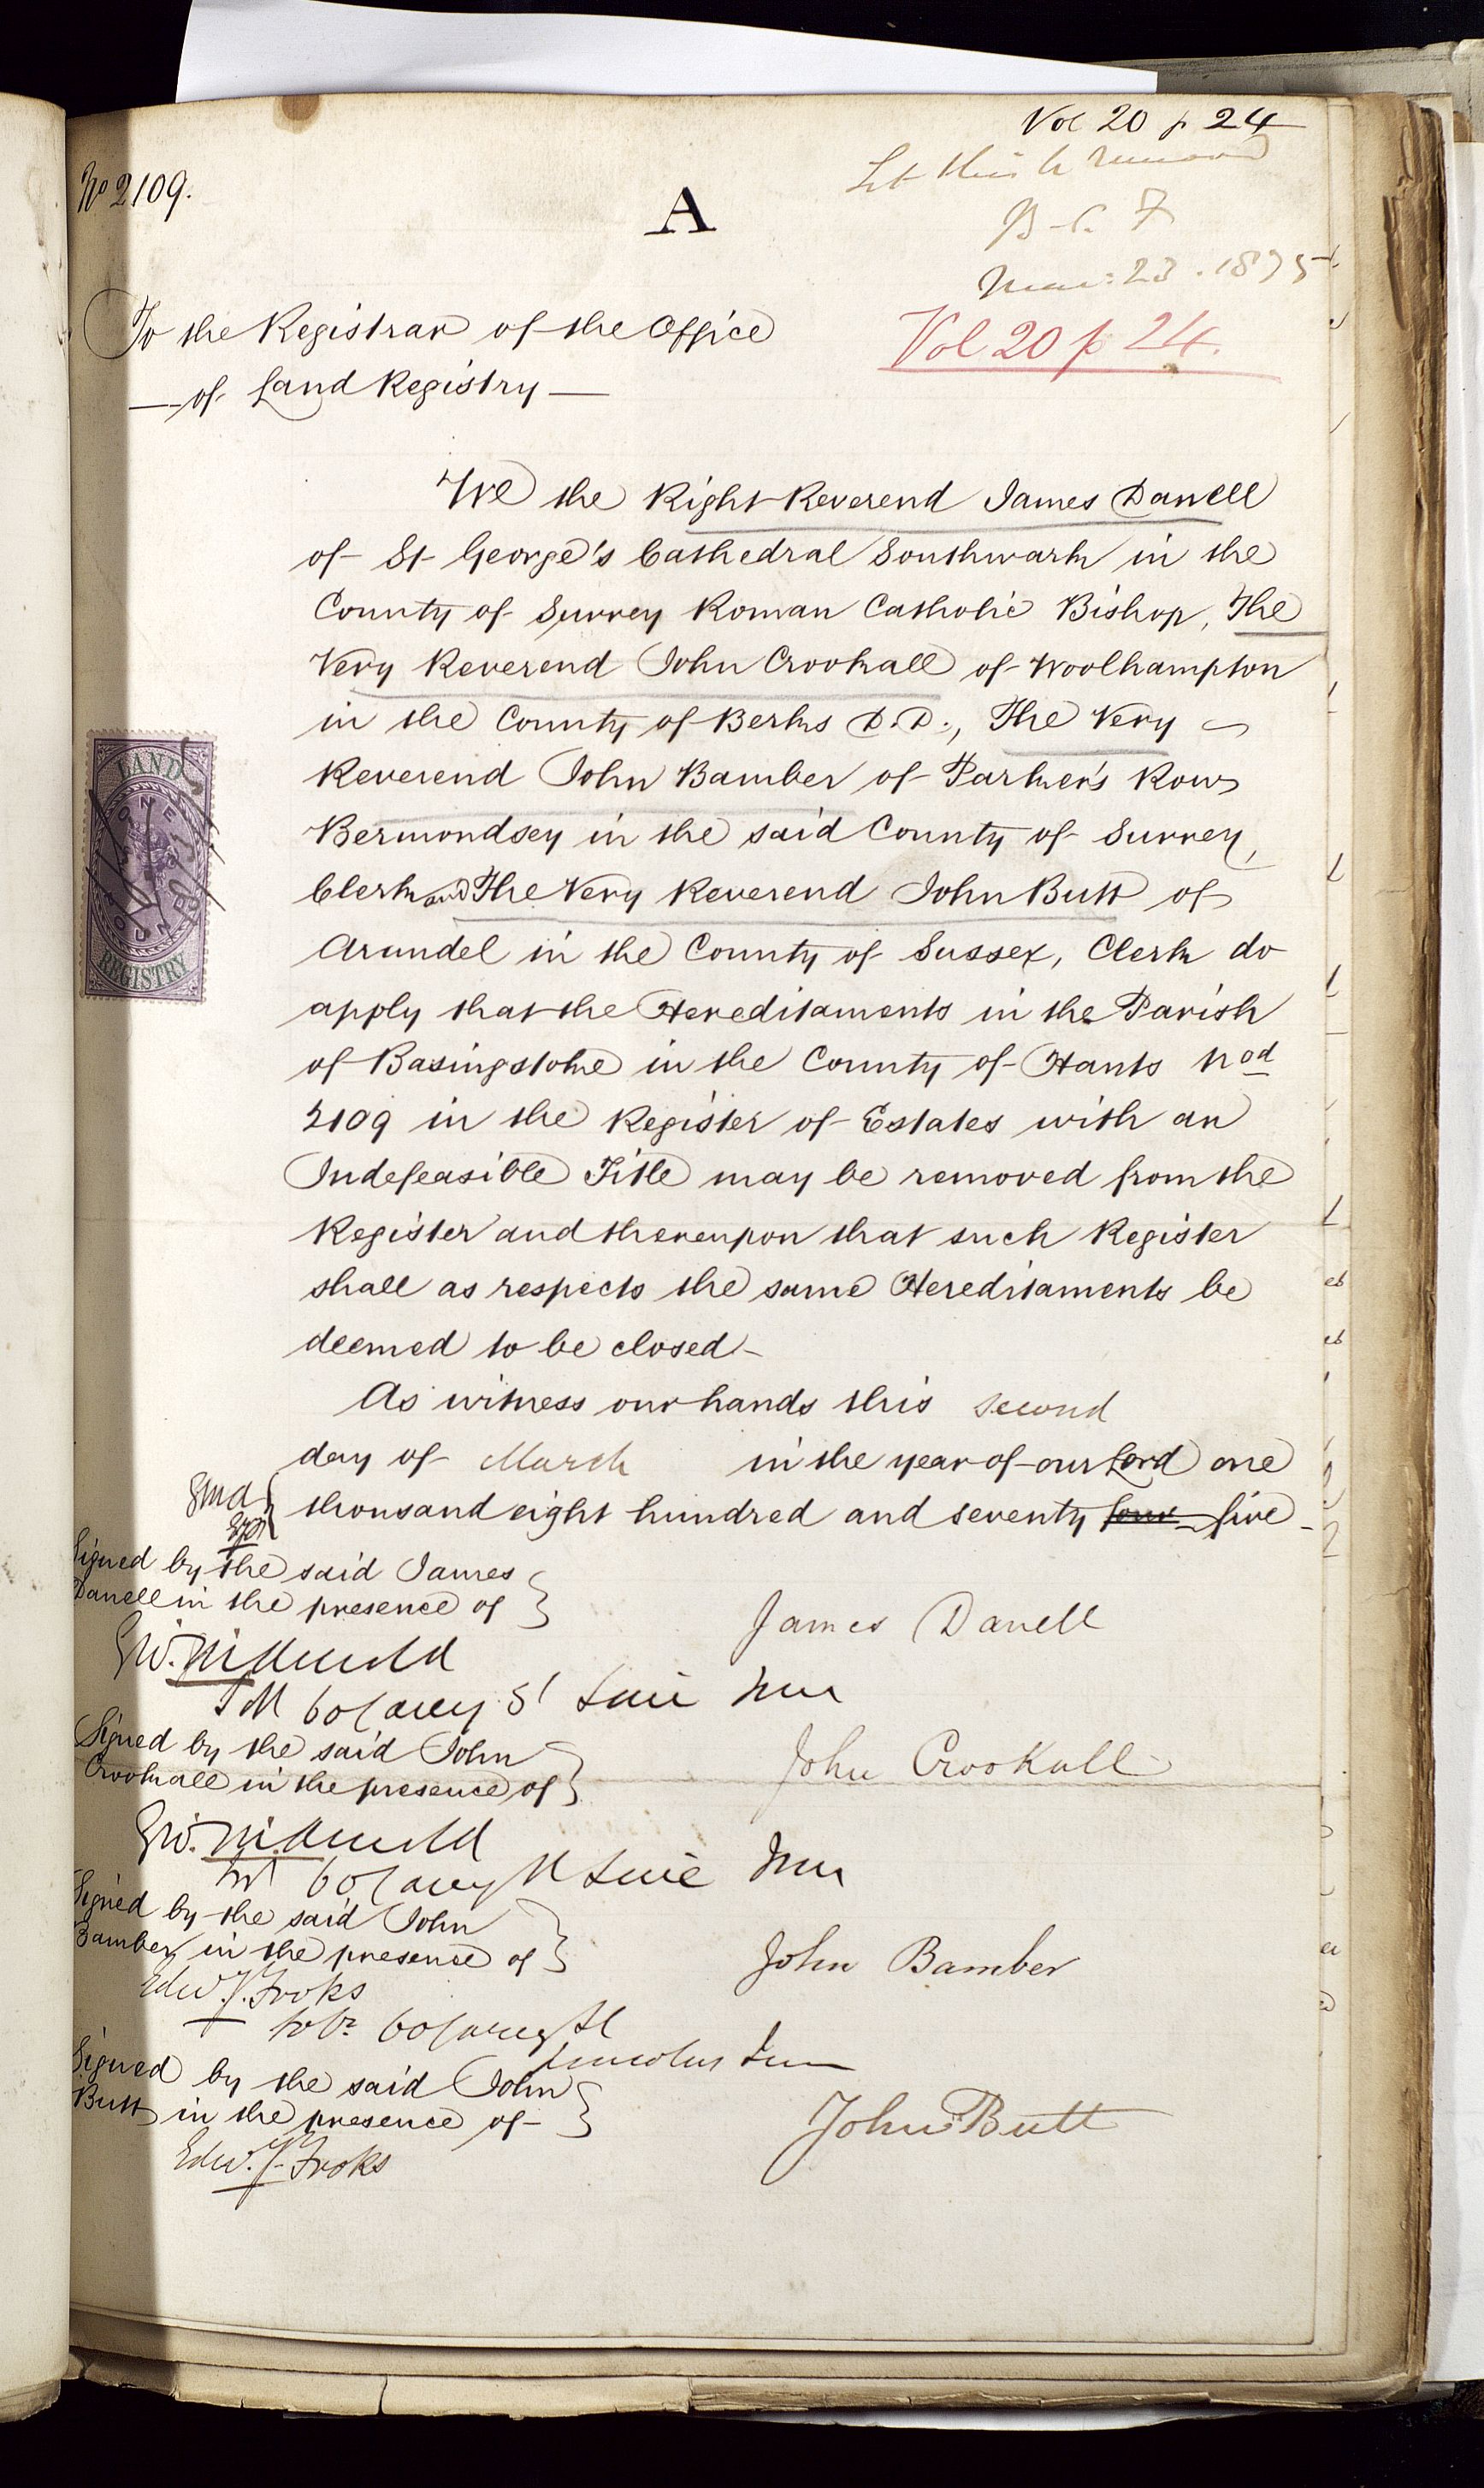 Vol 20 p 24
No 2109.
Let this be removed
B. C. F
Mar: 23. 1875
A
Vol 20 p 24.
To the Registrar of the Office
of Land Registry
We the Right Reverend James Danell
of St George's Cathedral Southwark in the
County of Surrey Roman Catholic Bishop, The
Very Reverend John Crookall of Woolhampton
in the County of Berks D.D., The Very
Reverend John Bamber of Parker's Row
Bermondsey in the said County of Surrey,
Clerk and The Very Reverend John Butt of
Arundel in the County of Sussex, Clerk do
apply that the Hereditaments in the Parish
of Basingstoke in the County of Hants Nod
2109 in the Register of Estates with an
Indefeasible Title may be removed from the
Register and thereupon that such Register
shall as respects the same Hereditaments be
deemed to be closed
As witness our hands this second
day of March in the year of our Lord one
thousand eight hundred and seventy four five
LAND
ONE
POUND
REGISTRY
Signed by the said James
Danell in the presence of
James Danell
60 Carey St Linc Inn
Signed by the said John
Crookall in the presence of
John Crookall
60 Carey St Linc Inn
Signed by the said John
Bamber in the presence of
John Bamber
Edw. J. Fooks
Solr 60 Carey St
Lincolns Inn
Signed by the said John
Butt in the presence of
John Butt
Edw. J. Fooks